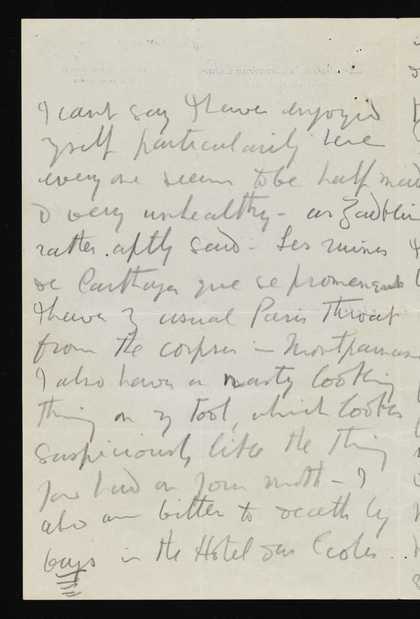 I cant say I have enjoyed
myself particularily here
every one seems to be half mad
& very unhealthy - as Zadkin
rather aptly said - Les ruines
de Carthage que se promenent
I have my usual Paris Throat
from the corpses in Montparnasse
I also have a nasty looking
thing on my
suspiciously like the thing
you had on your mouth - I
also am bitten to death by
bugs in the Hotel des Ecoles